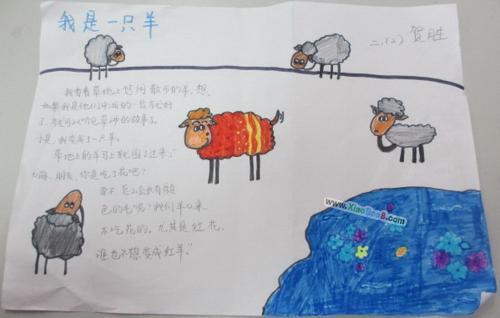 我是一只羊
二.(2) 贺胜
我看着草地上悠闲散步的羊，想
如果我是他们中间的一员有多好
了，就可以听见草州的故事了。
于是，我变成了一只羊。
草地上的羊马上就围了过来，“
嗨，朋友，你是吃了花吧？
要不怎么会有颜
色的毛呢？我们羊从来
不吃花的。尤其是红花，
谁也不想变成红羊。”
www.XiaoBaoB.com